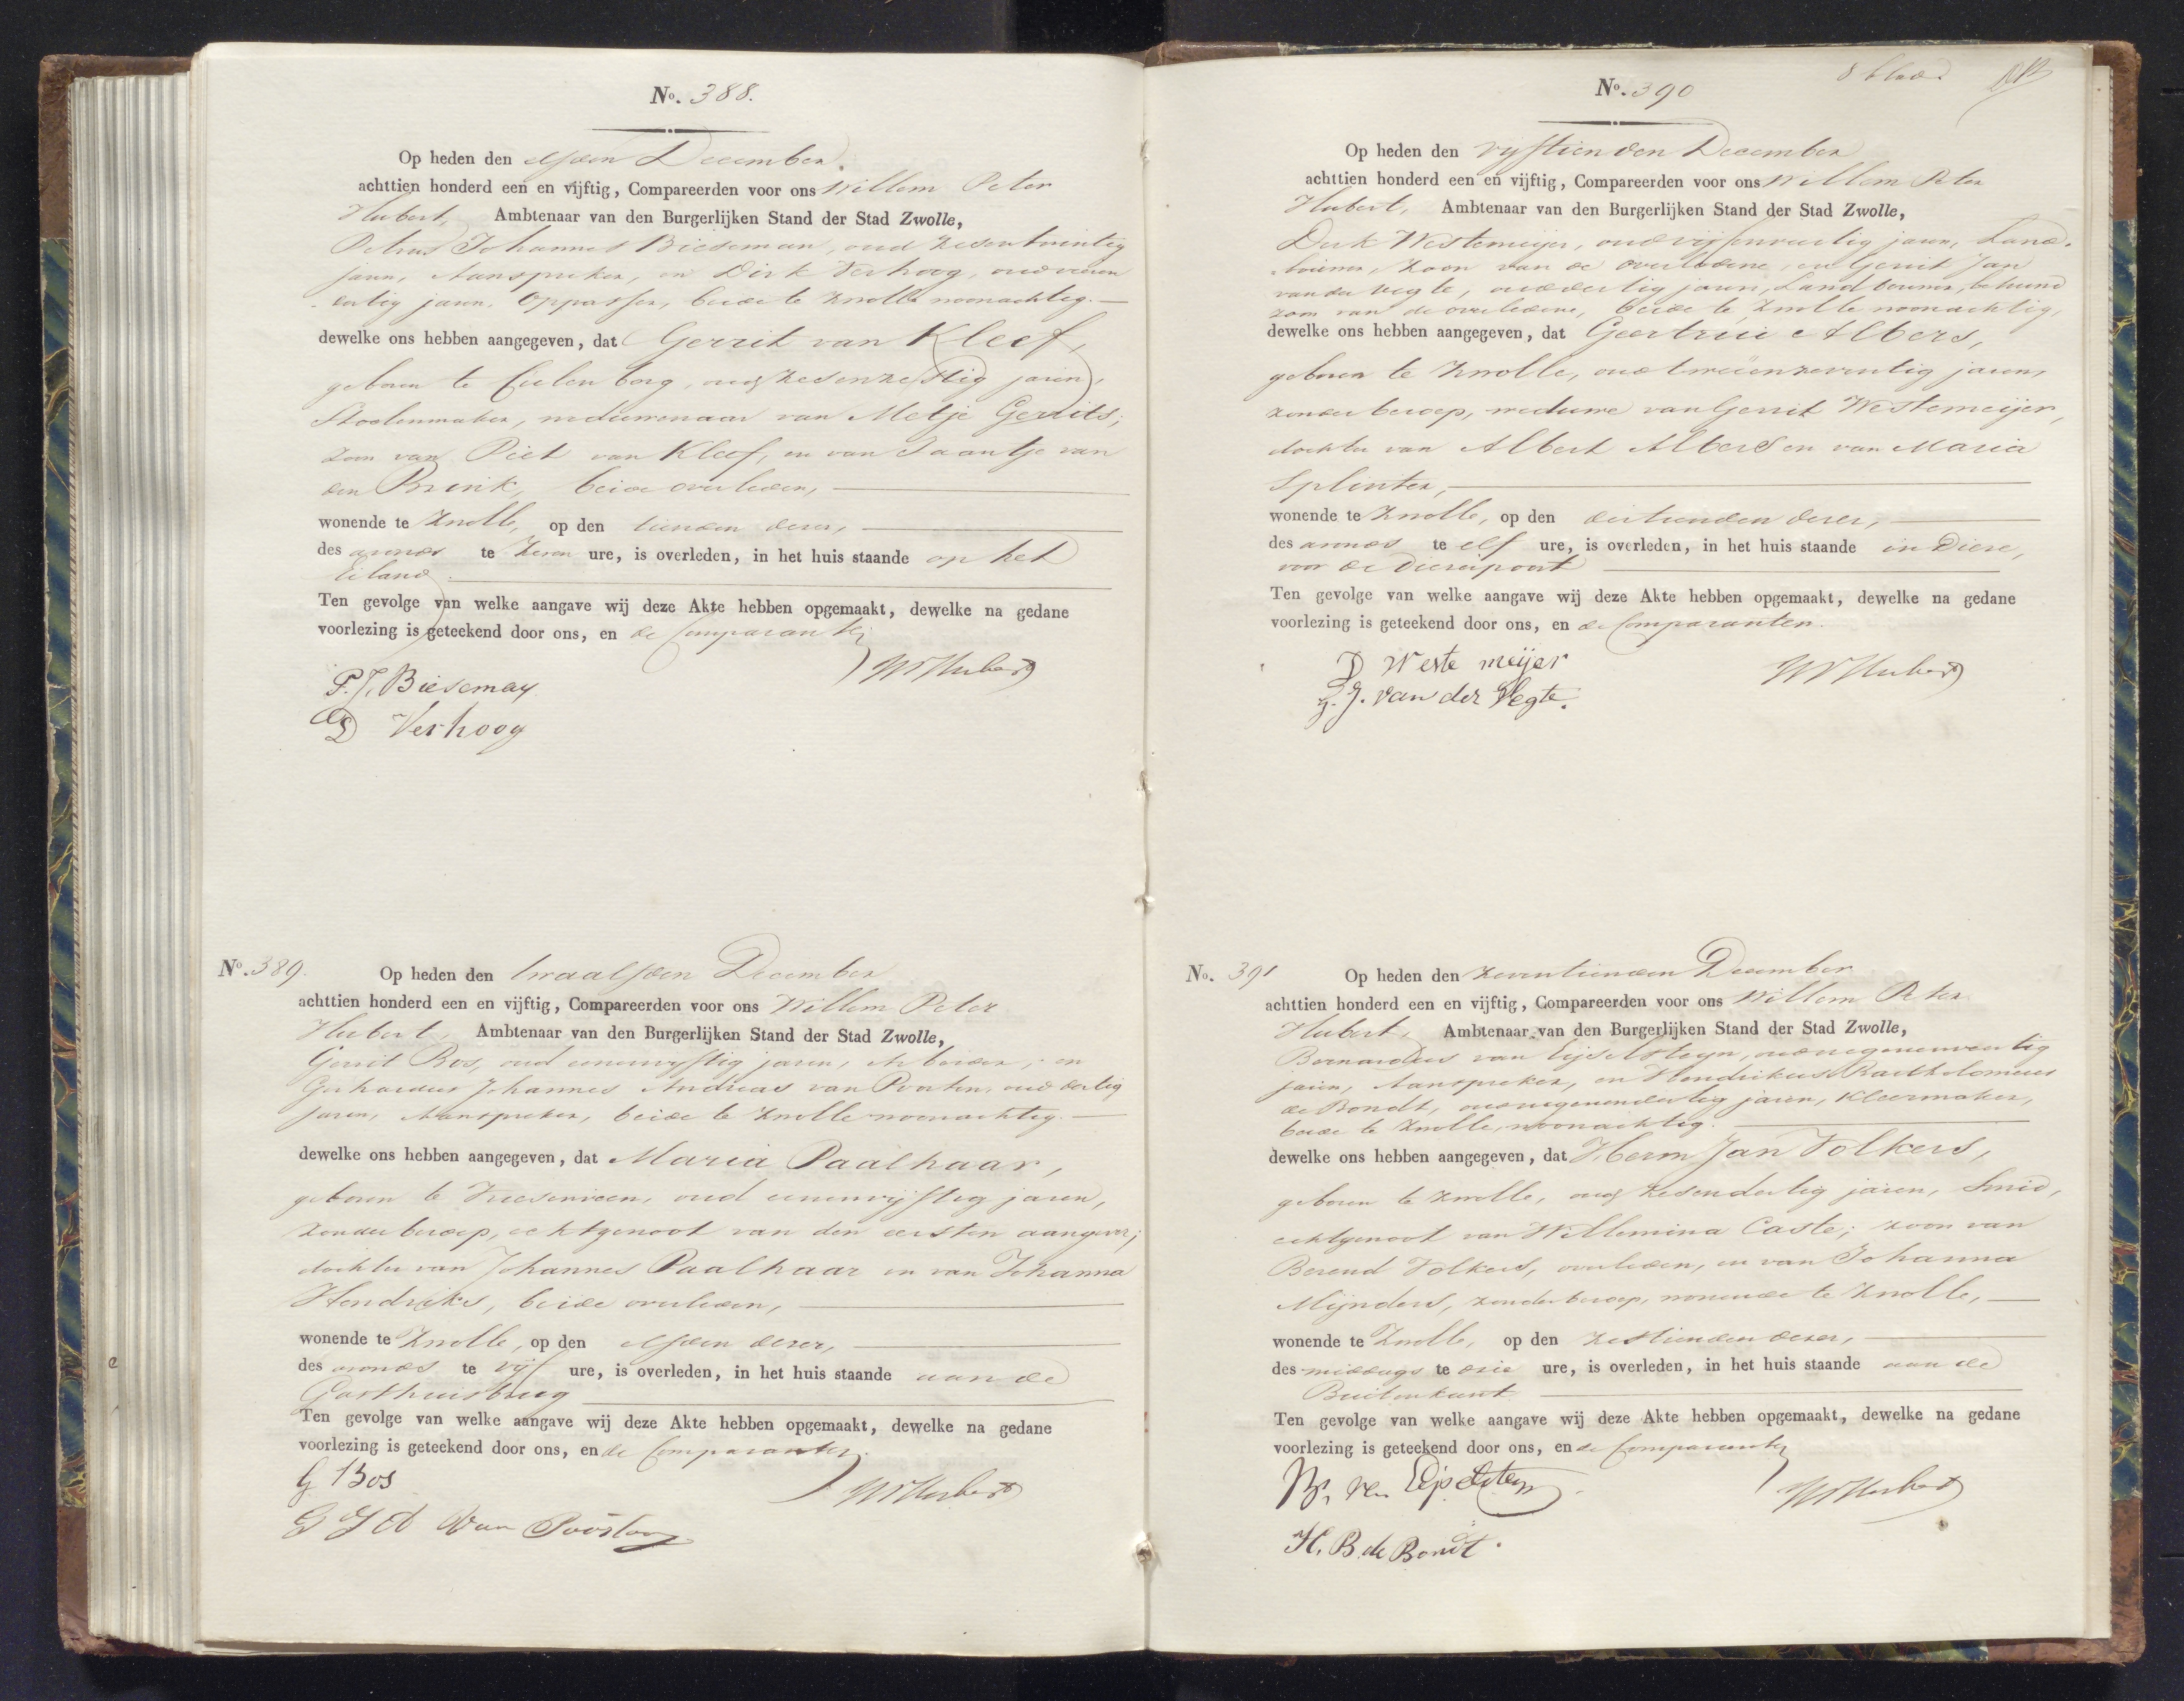 No. 388.
Op heden den elfden December
achttien honderd een en vijftig, Compareerden voor ons Willem Peter
Hubert, Ambtenaar van den Burgerlijken Stand der Stad Zwolle,
Petrus Johannes Bieseman, oud zesentwintig
jaren, Aanspreker, en Dirk Verhoog, oud vieren
dertig jaren, Oppasser, beide te Zwolle woonachtig.
dewelke ons hebben aangegeven, dat Gerrit van Kleef,
geboren te Cuilenborg, oud zesenzestig jaren,
Stoelenmaker, weduwenaar van Metje Gerrits;
zoon van Piet van Kleef, en van Jaantje van
den Brink, beide overleden,
wonende te Zwolle, op den tienden dezer,
des avonds te zeven ure, is overleden, in het huis staande op het
Eiland.
Ten gevolge van welke aangave wij deze Akte hebben opgemaakt, dewelke na gedane
voorlezing is geteekend door ons, en de Comparanten
WPHubert
P. J. Bieseman
D Verhoog
No. 389.
Op heden den twaalfden December
achttien honderd een en vijftig, Compareerden voor ons Willem Peter
Hubert, Ambtenaar van den Burgerlijken Stand der Stad Zwolle,
Gerrit Bos, oud eenenvijftig jaren, Arbeider, en
Gerhardus Johannes Andreas van Poorten, oud dertig
jaren, Aanspreker, beide te Zwolle woonachtig.
dewelke ons hebben aangegeven, dat Maria Paalhaar,
geboren te Vriesenveen, oud eenenvijftig jaren,
zonder beroep, echtgenoot van den eersten aangever;
dochter van Johannes Paalhaar en van Johanna
Hendriks, beide overleden,
wonende te Zwolle, op den elfden dezer,
des avonds te vijf ure, is overleden, in het huis staande aan de
Gasthuisbrug
Ten gevolge van welke aangave wij deze Akte hebben opgemaakt, dewelke na gedane
voorlezing is geteekend door ons, en de Comparanten.
G Bos
WPHubert
G J A Van Poorten
8 blad
No. 390
Op heden den vijftienden December
achttien honderd een en vijftig, Compareerden voor ons Willem Peter
Hubert, Ambtenaar van den Burgerlijken Stand der Stad Zwolle,
Derk Westemeijer, oud vijfenveertig jaren, Land-
bouwer, zoon van de overledene, en Gerrit Jan
van der Vegte, oud dertig jaren, Landbouwer, behuwd
zoon van de overledene, beide te Zwolle woonachtig,
dewelke ons hebben aangegeven, dat Geertrui Albers,
geboren te Zwolle, oud tweeenzeventig jaren,
zonder beroep, weduwe van Gerrit Westemeijer,
dochter van Albert Albers en van Maria
Splinter,
wonende te Zwolle, op den dertienden dezer,
des avonds te elf ure, is overleden, in het huis staande in Dieze,
voor de Diezerpoort
Ten gevolge van welke aangave wij deze Akte hebben opgemaakt, dewelke na gedane
voorlezing is geteekend door ons, en de Comparanten.
D Weste meijer
WPHubert
G. J. van der Vegte.
No. 391
Op heden den zeventienden December
achttien honderd een en vijftig, Compareerden voor ons Willem Peter
Hubert, Ambtenaar van den Burgerlijken Stand der Stad Zwolle,
Bernardus van Eijselsteyn, oud negenenveertig
jaren, Aanspreker, en Hendrikus Bartholomeus
de Bondt, oud negenendertig jaren, Kleermaker,
beide te Zwolle, woonachtig.
dewelke ons hebben aangegeven, dat Herm Jan Volkers,
geboren te Zwolle, oud zesendertig jaren, Smid,
echtgenoot van Willemina Caste; zoon van
Berend Volkers, overleden, en van Johanna
Mijnders, zonder beroep, wonende te Zwolle,
wonende te Zwolle, op den zestienden dezer,
des middags te drie ure, is overleden, in het huis staande aan de
Buitenkant
Ten gevolge van welke aangave wij deze Akte hebben opgemaakt, dewelke na gedane
voorlezing is geteekend door ons, en de Comparanten
WPHubert
H. B. de Bondt.